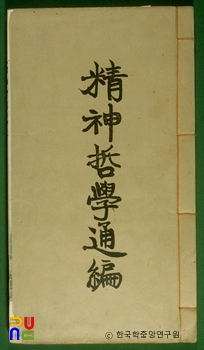 精神哲學通編
© 한국학중앙연구원